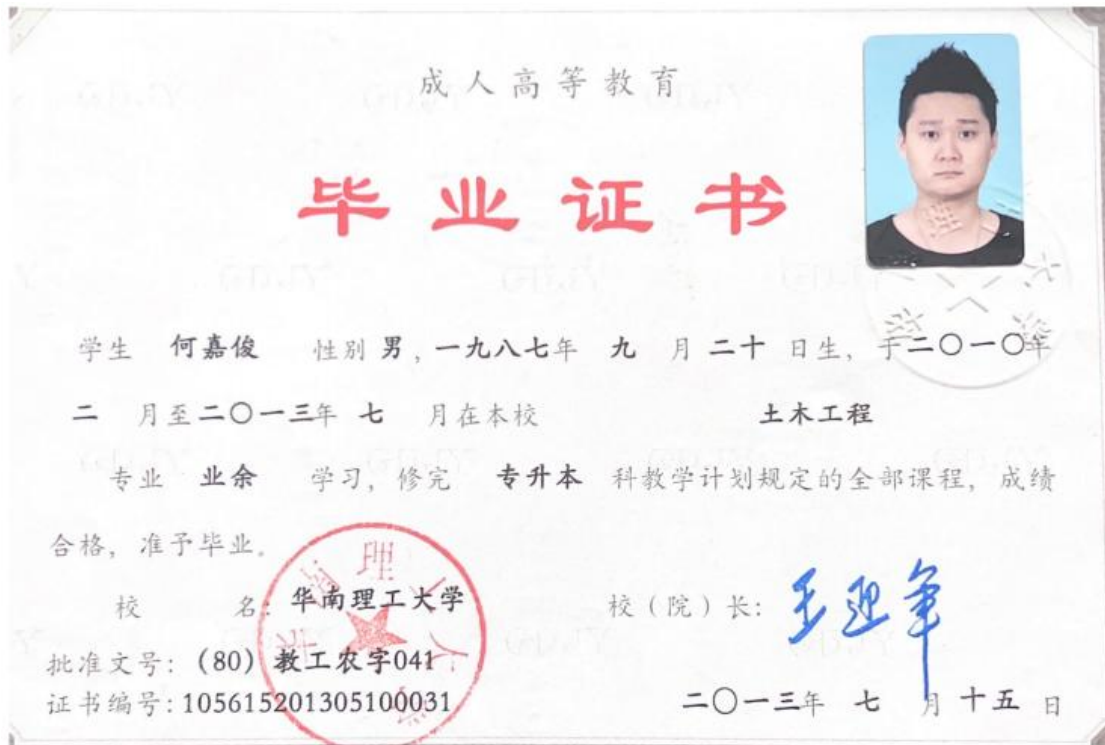 成人高等教育
毕业证书
学生 何嘉俊 性别 男，一九八七年 九 月 二十 日生，于二〇一〇年
二 月至二〇一三年 七 月在本校 土木工程
专业 业余 学习，修完 专升本 科教学计划规定的全部课程，成绩
合格，准予毕业。
校 名：华南理工大学 校（院）长：王迎军
批准文号：（80）教工农字041
证书编号：105615201305100031 二〇一三年 七 月 十五 日